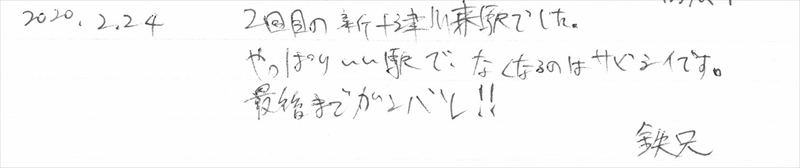 2020.2.24 2回目の新十津川来駅でした。
やっぱりいい駅で、なくなるのはサビシイです。
最後までガンバレ!!
鉄兄